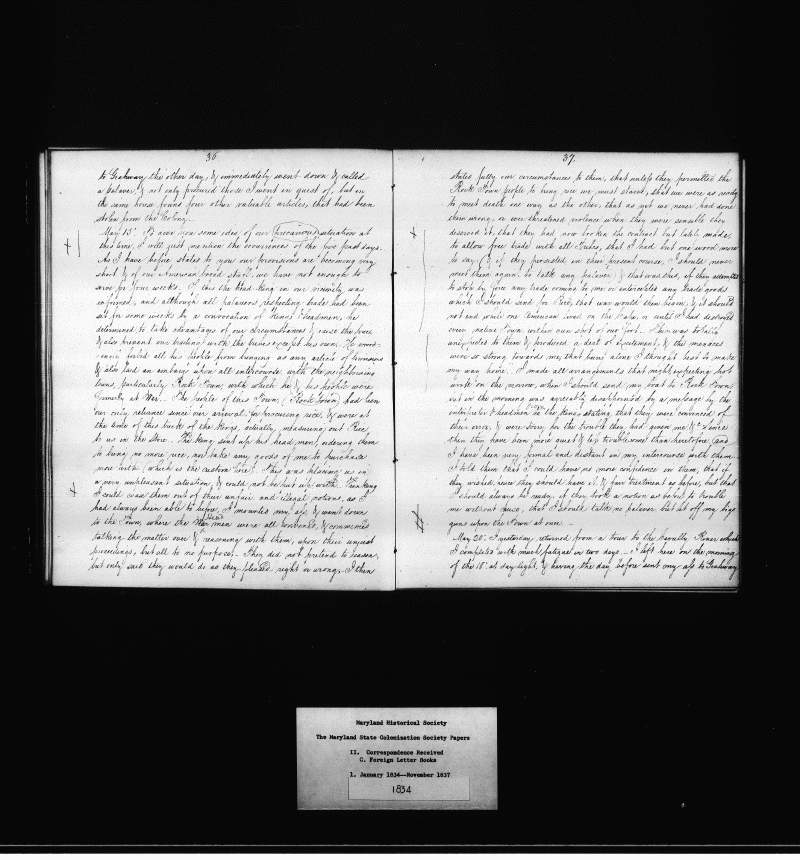 36
to Grahway, the other day, & immediately went down & called
a Palaver, & not only procured those I went in quest of, but in
the same house found four other valuable articles, that had been
stolen from the Colony.
May 15th To give you some idea, of our precarious situation at
this time, I will just mention the occurrences of the few past days.
As I have before stated to you our provisions are becoming very
short & of our American bread stuff, we have not enough to
serve for four weeks. Of this the Head King in our vicinity, was
informed, and although all palavers respecting trade had been
set for some weeks by a convocation of Kings & headmen, he
determined to take advantage of our circumstances & raise the price
& also prevent our trading with the tribes except his own. He
forbid all his people from bringing us any article of
& also laid an embargo upon all intercourse with the neighbouring
towns, particularly Rock Town, with which he & his people were
formerly at War. The people of this Town, (Rock Town) had been
our only reliance since our arrival for procuring rice, & were at
the time of this freck of the Kings, actually, measuring out Rice
to us in the Store. The King sent up his head men, ordering them
to bring no more rice, nor take any goods of me to purchase
more with, (which is the custom here). This was placing us in
a very unpleasant situation, & could not be put up with. Thinking
I could coax them out of their unfair and illegal notions, as I
had always been able to before, I mounted my ass & went down
to the Town, where the Head men were all convened, & commenced
talking the matter over & reasoning with them, upon their unjust
proceedings, but all to no purpose. They did not pretend to reason,
but only said they would do as they pleased, right or wrong. I then
37.
stated fully our circumstances to them, that unless they permitted the
Rock Town people to bring rice we must starve, that we were as ready
to meet death one way as the other, that as yet we never had done
them wrong, or ever threatened violence when they were sensible they
deserved it, that they had now broken the contract but lately made,
to allow free trade with all Tribes, that I had but one word more
to say & if they persisted in their present course, I should never
meet them again to talk any palaver & that was this, if they attempted
to stop by force any trade coming to me or intercepted any trade goods
which I should send for Rice, that war would then begin, & it should
not end while one American lived on the Cape, or until I had destroyed
every native Town within gun shot of our fort. This was totally
unexpected to them & produced a deal of excitement, & the menaces
were so strong towards me, that being alone I thought best to make
my way home. I made all arrangements that night, expecting hot
work on the morrow, when I should send my boat to Rock Town,
but in the morning was agreeably disappointed by a message by the
interpreter & headmen from the King stating, that they were convinced of
their error, & were sorry for the trouble they had given me &c. Since
then they have been more quiet & less troublesome than heretofore, and
I have been very formal and distant in my intercourse with them.
I told them that I could have no more confidence in them, that if
they wished peace they should have it, & fair treatment as before, but that
I should always be ready, if they took a notion as before to trouble
me without cause, that I should talk no palaver but let off my big
guns upon the Town at once.
May 20th I yesterday, returned from a tour to the Cavally River which
I completed with much fatigue in two days. I left here on the morning
of the 18th at day light, & having the day before sent my ass to Grahway
Maryland Historical Society
The Maryland State Colonization Society Papers
II. Correspondence Received
C. Foreign Letter Books
1. January 1834--November 1837
1834